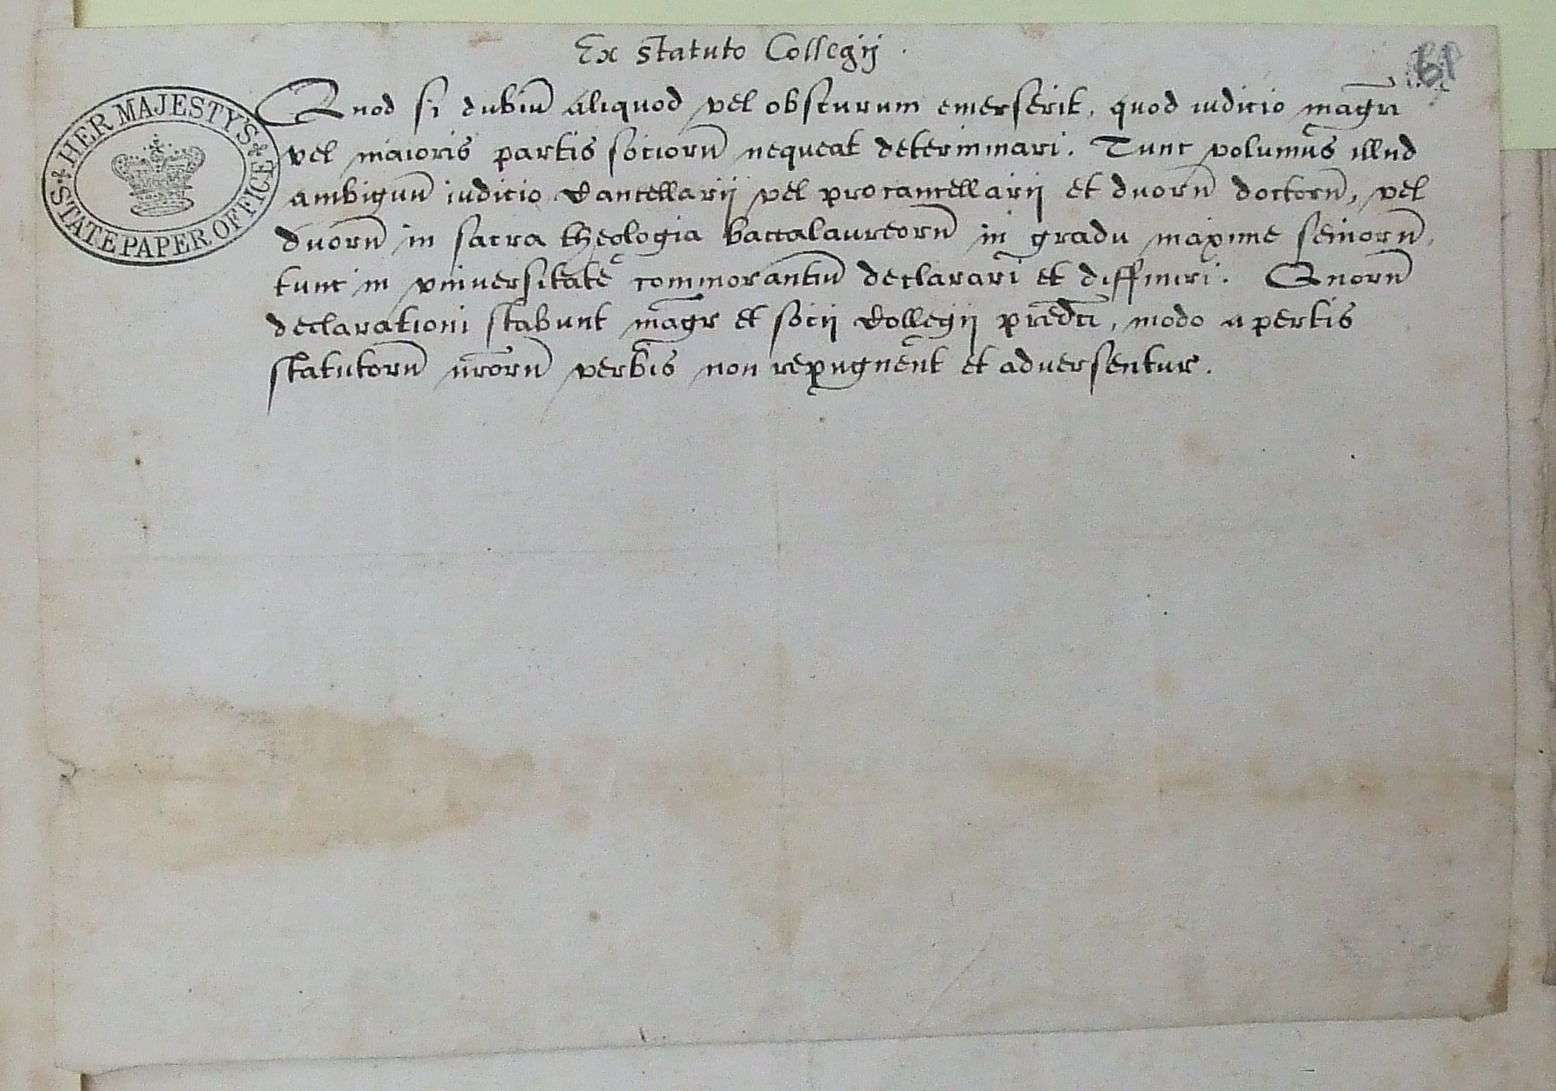 Ex statuto Collegij.
61
HER MAJESTY'S STATE PAPER OFFICE
Quod si dubiū aliquod vel obscurum emerserit, quod iudicio magrī
vel maioris partis sociorū nequeat determinari. Tunc volumus illud
ambiguū iudicio Cancellarij vel procancellarij et duorū doctorū, vel
duorū in sacra theologia baccalaureorū in gradu maxime seniorū,
tunc in vniuersitate commorantiū declarari et diffiniri. Quorū
declarationi stabunt magr̄ et socij Collegij prēdcti, modo apertis
statutorū nr̄orū verbis non repugnent et aduersentur.